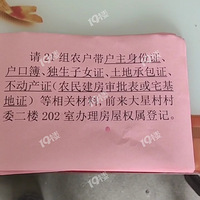 请21组农户带户主身份证、
户口簿、独生子女证、土地承包证、
不动产证（农民建房审批表或宅基
地证）等相关材料，前来大星村村
委二楼202室办理房屋权属登记。